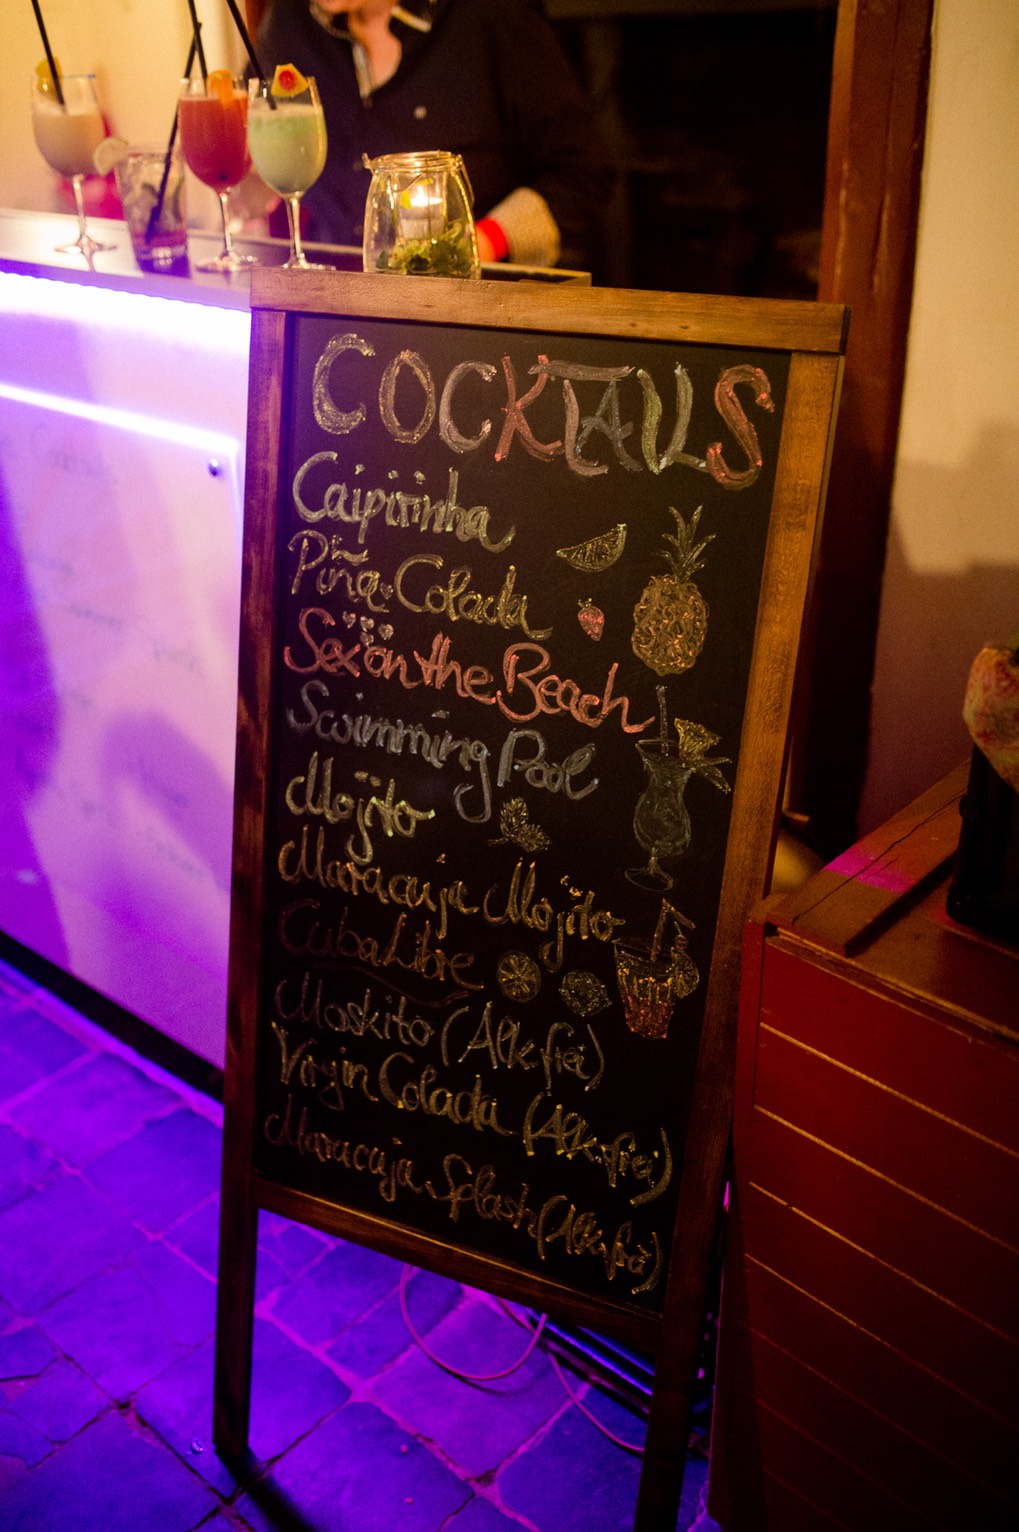 COCKTAILS
Caipirinha
Piña Colada
Sex on the Beach
Swimming Pool
Mojito
Maracuja Mojito
Cuba Libre
Moskito (Alk.frei)
Virgin Colada (Alk.frei)
Maracuja Splash (Alk.frei)